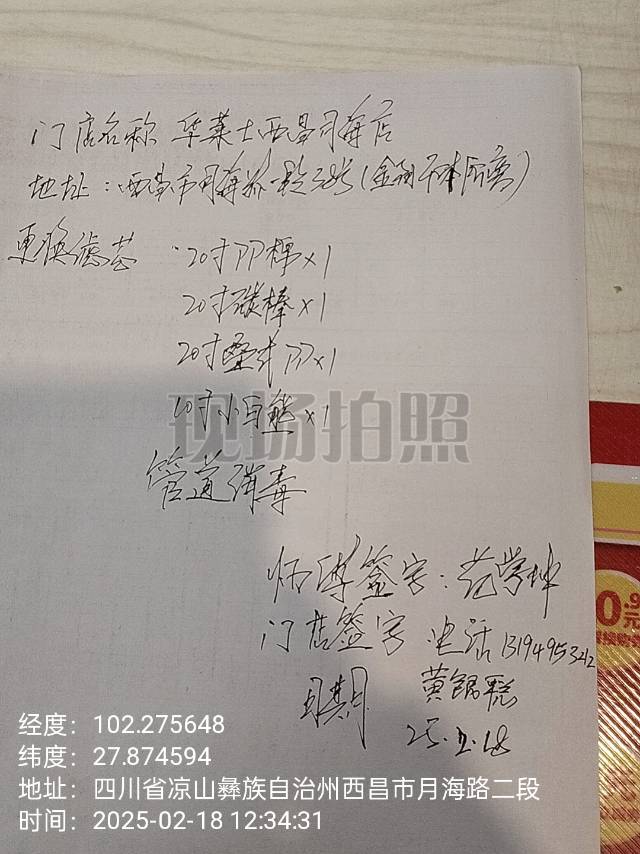 门店名称 华莱士西昌月海店
地址：西昌市月海路一段38号(
更换滤芯 20寸PP棉x1
20寸碳棒x1
20寸叠式PPx1
10寸小白熊x1
现场拍照
管道消毒
师傅签字：范学坤
门店签字 电话
日期 黄
25.2.18
0.9
元
经度：102.275648
纬度：27.874594
地址：四川省凉山彝族自治州西昌市月海路二段
时间：2025-02-18 12:34:31